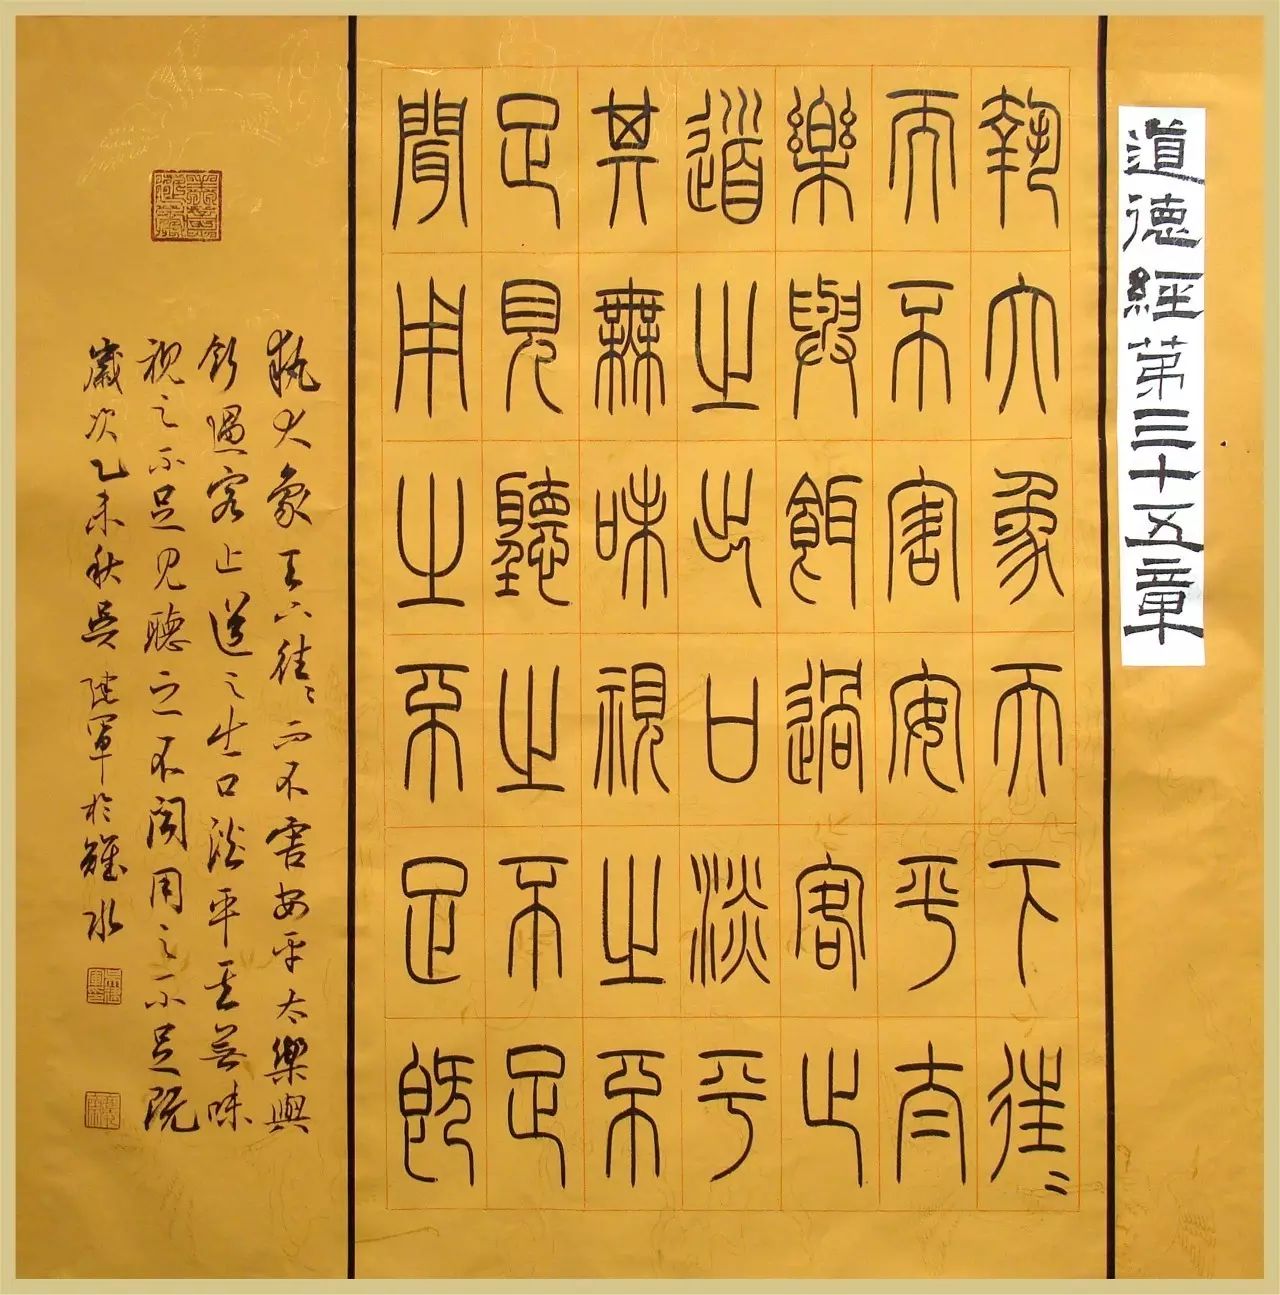 道德經第三十五章
執大象天下往〻
而不害安平太
樂與餌過客止
道之出口淡乎
其無味視之不
足見聽之不足
聞用之不足既
執大象天下往〻而不害安平太樂與
餌過客止道之出口淡乎其無味
視之不足見聽之不聞用之不足既
歲次乙未秋吳陸軍於雒水